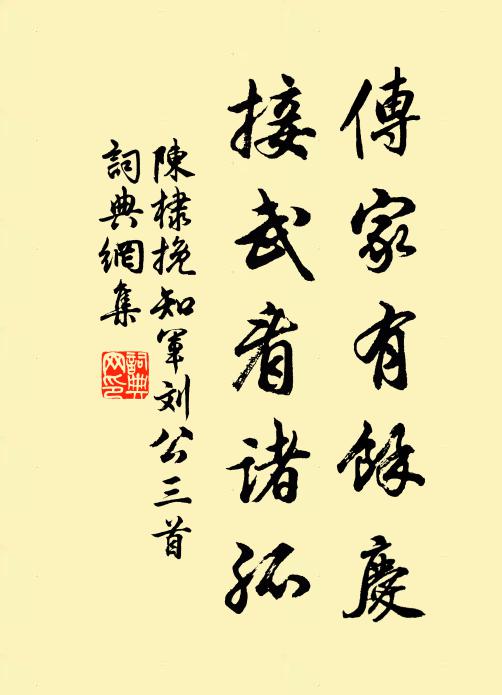 傳家有餘慶
接武看诸孤
陳棣挽知軍刘公三首
詞典網集
詞典网印